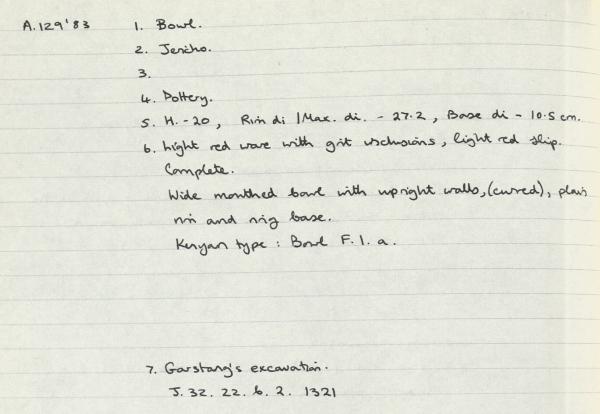 A.129'83 1. Bowl.
2. Jericho.
3.
4. Pottery.
5. H. - 20, Rim di / Max. di. - 27.2, Base di - 10.5 cm.
6. Light red ware with grit inclusions, light red slip.
Complete.
Wide mouthed bowl with upright walls, (curved), plain
rim and ring base.
Kenyan type : Bowl F.1.a.
7. Garstang's excavation.
J. 32. 22. 6. 2. 1321